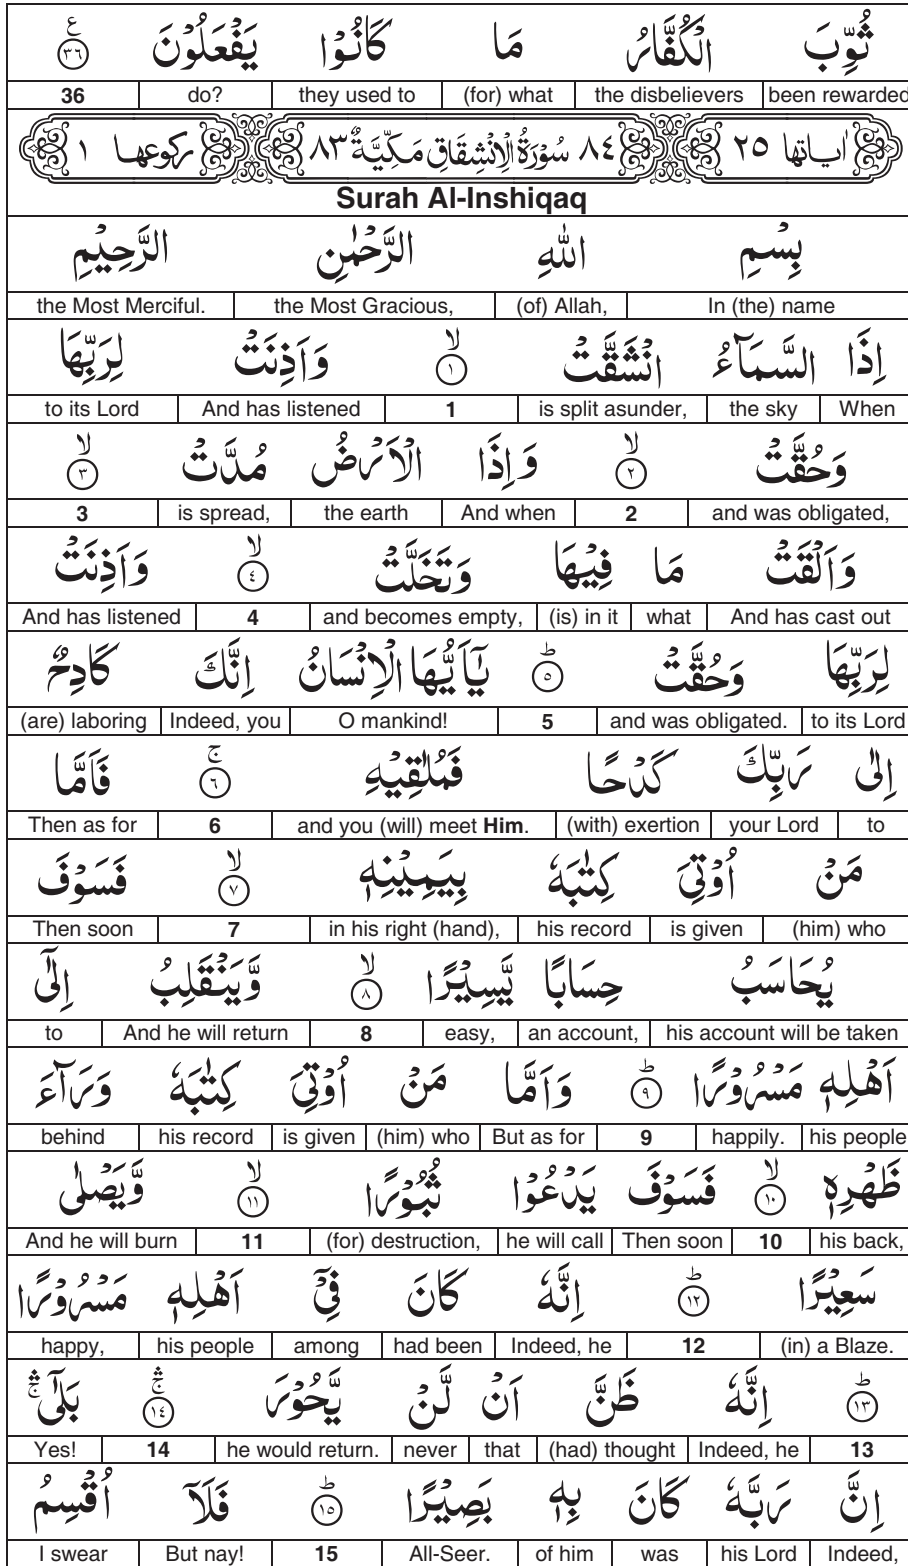 ثُوِّبَ الْكُفَّارُ مَا كَانُوْا يَفْعَلُوْنَ ع ٣٦
been rewarded | the disbelievers | (for) what | they used to | do? | 36
اٰياتها ٢٥ ٨٤ سُوْرَةُ الْاِنْشِقَاقِ مَكِّيَّةٌ ٨٣ ركوعها ١
Surah Al-Inshiqaq
بِسْمِ اللهِ الرَّحْمٰنِ الرَّحِيْمِ
In (the) name | (of) Allah, | the Most Gracious, | the Most Merciful.
اِذَا السَّمَآءُ انْشَقَّتْ ۙ ١ وَاَذِنَتْ لِرَبِّهَا
When | the sky | is split asunder, | 1 | And has listened | to its Lord
وَحُقَّتْ ۙ ٢ وَاِذَا الْاَرْضُ مُدَّتْ ۙ ٣
and was obligated, | 2 | And when | the earth | is spread, | 3
وَاَلْقَتْ مَا فِيْهَا وَتَخَلَّتْ ۙ ٤ وَاَذِنَتْ
And has cast out | what | (is) in it | and becomes empty, | 4 | And has listened
لِرَبِّهَا وَحُقَّتْ ؕ ٥ يٰۤاَيُّهَا الْاِنْسَانُ اِنَّكَ كَادِحٌ
to its Lord | and was obligated. | 5 | O mankind! | Indeed, you | (are) laboring
اِلٰى رَبِّكَ كَدْحًا فَمُلٰقِيْهِ ۚ ٦ فَاَمَّا
to | your Lord | (with) exertion | and you (will) meet Him. | 6 | Then as for
مَنْ اُوْتِيَ كِتٰبَهٗ بِيَمِيْنِهٖ ۙ ٧ فَسَوْفَ
(him) who | is given | his record | in his right (hand), | 7 | Then soon
يُحَاسَبُ حِسَابًا يَّسِيْرًا ۙ ٨ وَّيَنْقَلِبُ اِلٰۤى
his account will be taken | an account, | easy, | 8 | And he will return | to
اَهْلِهٖ مَسْرُوْرًا ؕ ٩ وَاَمَّا مَنْ اُوْتِيَ كِتٰبَهٗ وَرَآءَ
his people | happily. | 9 | But as for | (him) who | is given | his record | behind
ظَهْرِهٖ ۙ ١٠ فَسَوْفَ يَدْعُوْا ثُبُوْرًا ۙ ١١ وَّيَصْلٰى
his back, | 10 | Then soon | he will call | (for) destruction, | 11 | And he will burn
سَعِيْرًا ؕ ١٢ اِنَّهٗ كَانَ فِيْۤ اَهْلِهٖ مَسْرُوْرًا
(in) a Blaze. | 12 | Indeed, he | had been | among | his people | happy,
ؕ ١٣ اِنَّهٗ ظَنَّ اَنْ لَّنْ يَّحُوْرَ ۛۚ ١٤ بَلٰۤى ۛۚ
13 | Indeed, he | (had) thought | that | never | he would return. | 14 | Yes!
اِنَّ رَبَّهٗ كَانَ بِهٖ بَصِيْرًا ؕ ١٥ فَلَاۤ اُقْسِمُ
Indeed, | his Lord | was | of him | All-Seer. | 15 | But nay! | I swear